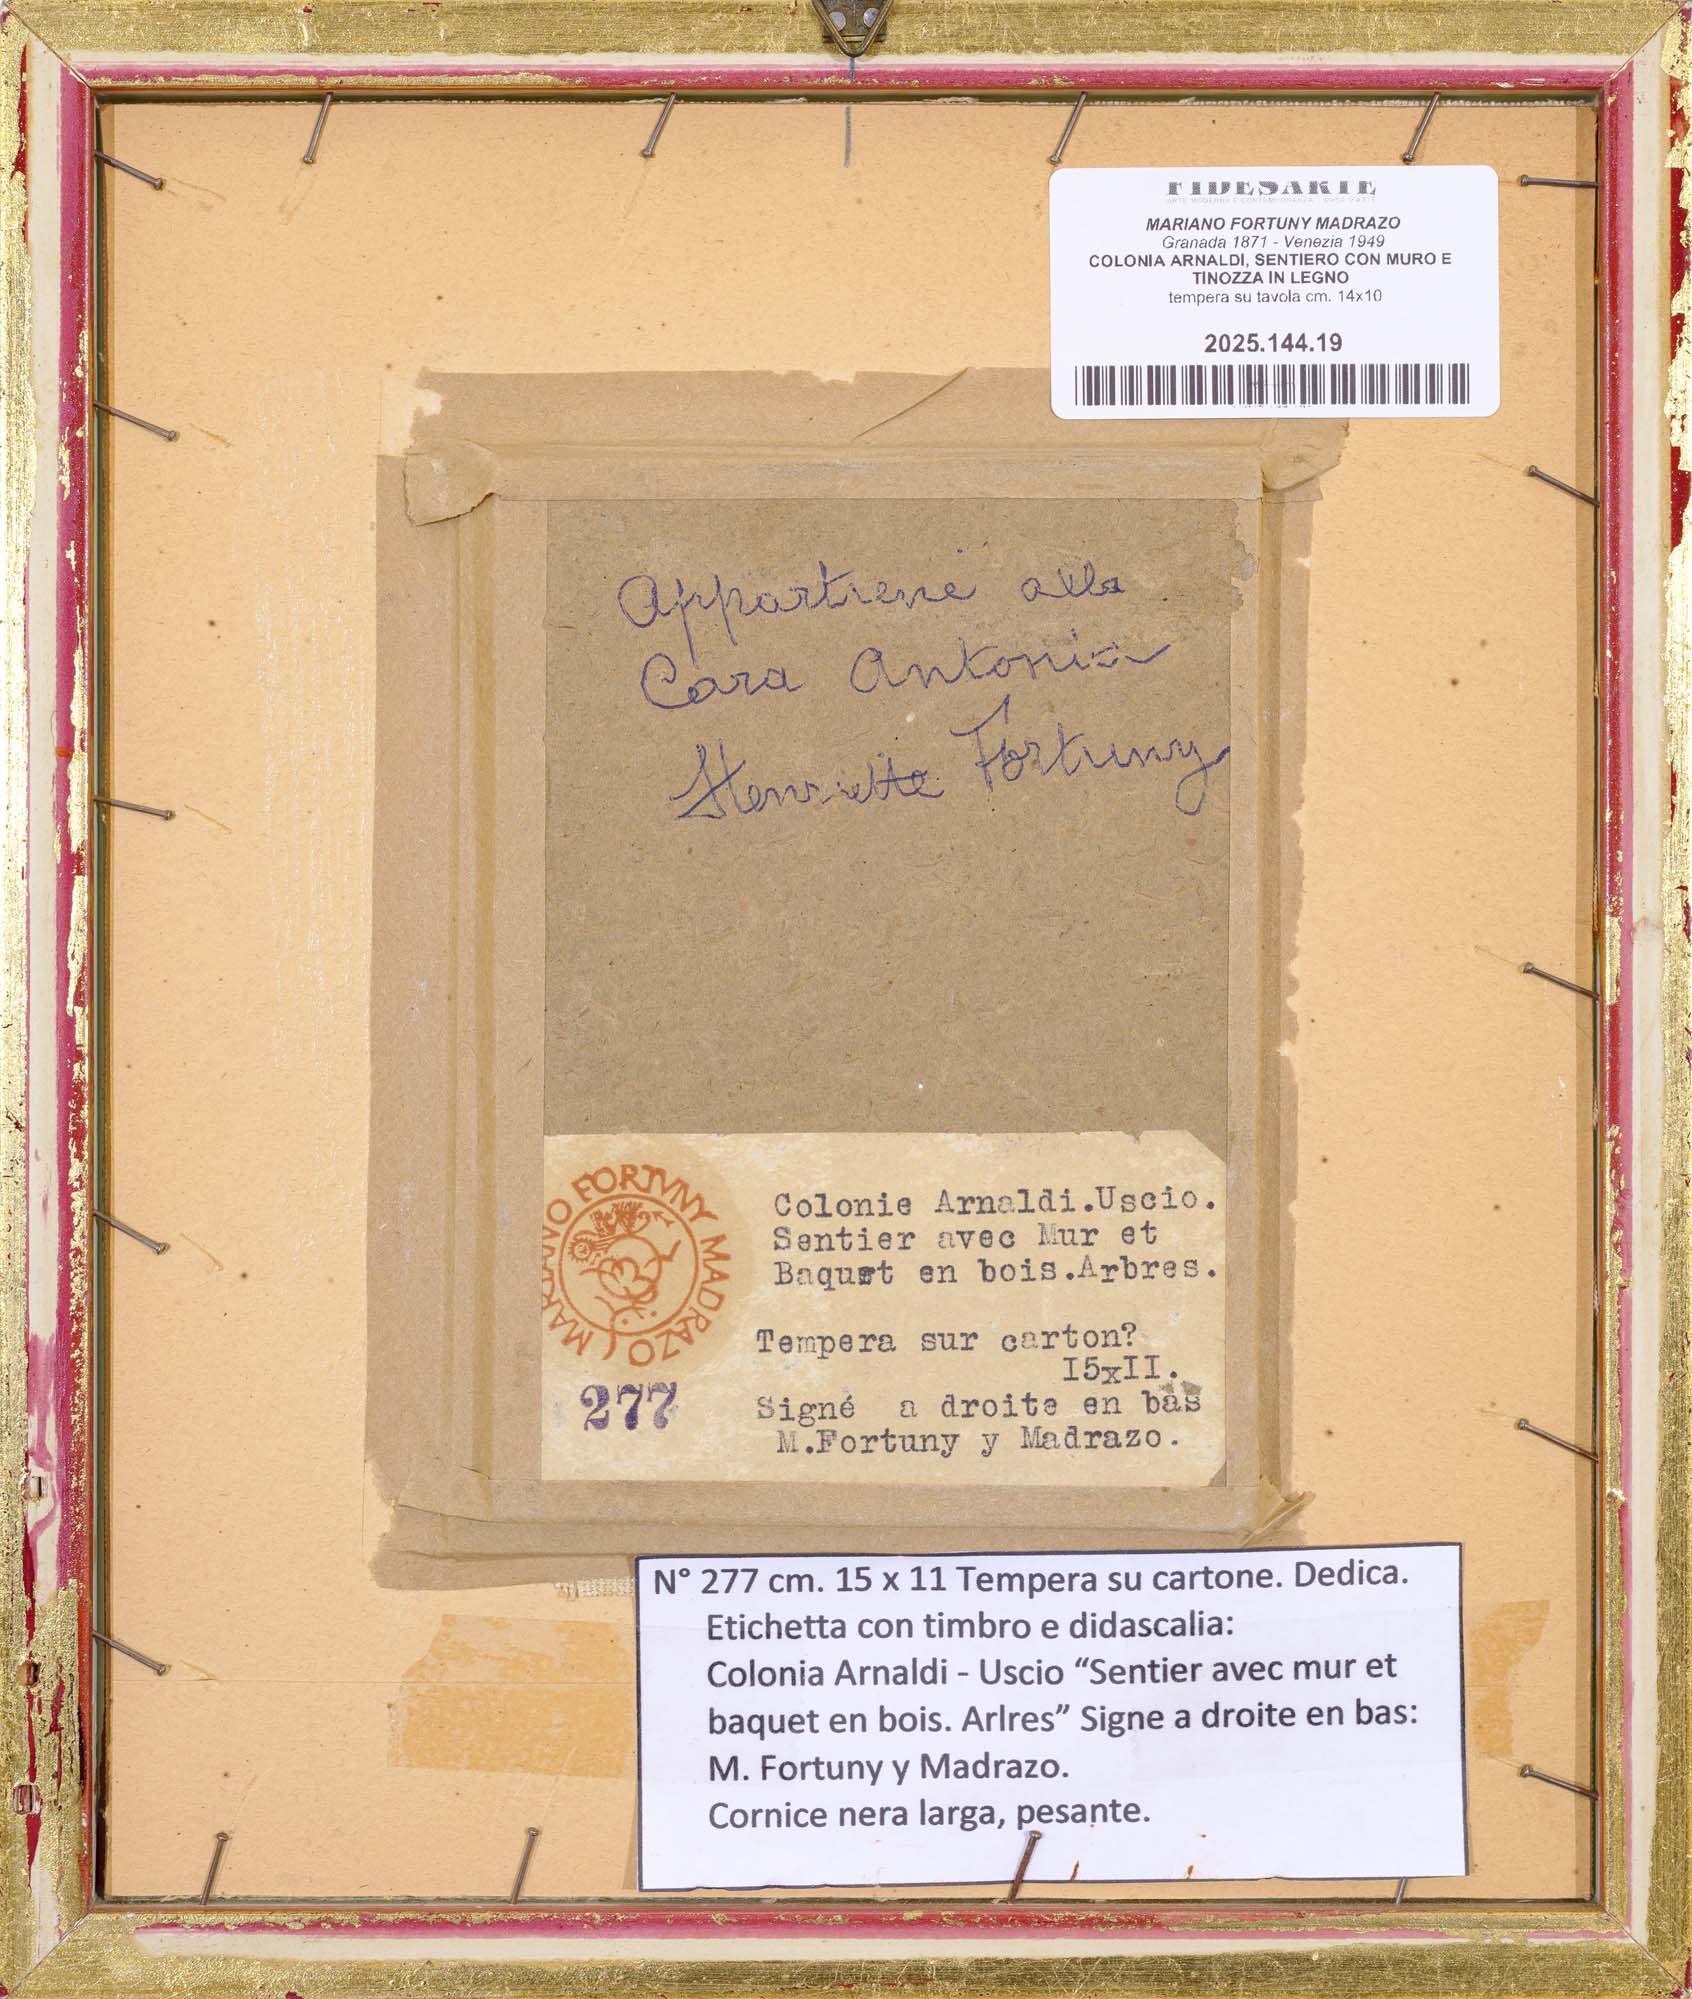 FIDESARTE
MARIANO FORTUNY MADRAZO
Granada 1871 - Venezia 1949
COLONIA ARNALDI, SENTIERO CON MURO E
TINOZZA IN LEGNO
tempera su tavola cm. 14x10
2025.144.19
Appartiene alla
Cara Antonia
Henriette Fortuny
MARIANO FORTVNY MADRAZO
277
Colonie Arnaldi.Uscio.
Sentier avec Mur et
Baquet en bois.Arbres.
Tempera sur carton?
I5xII.
Signé a droite en bas
M.Fortuny y Madrazo.
N° 277 cm. 15 x 11 Tempera su cartone. Dedica.
Etichetta con timbro e didascalia:
Colonia Arnaldi - Uscio “Sentier avec mur et
baquet en bois. Arlres” Signe a droite en bas:
M. Fortuny y Madrazo.
Cornice nera larga, pesante.